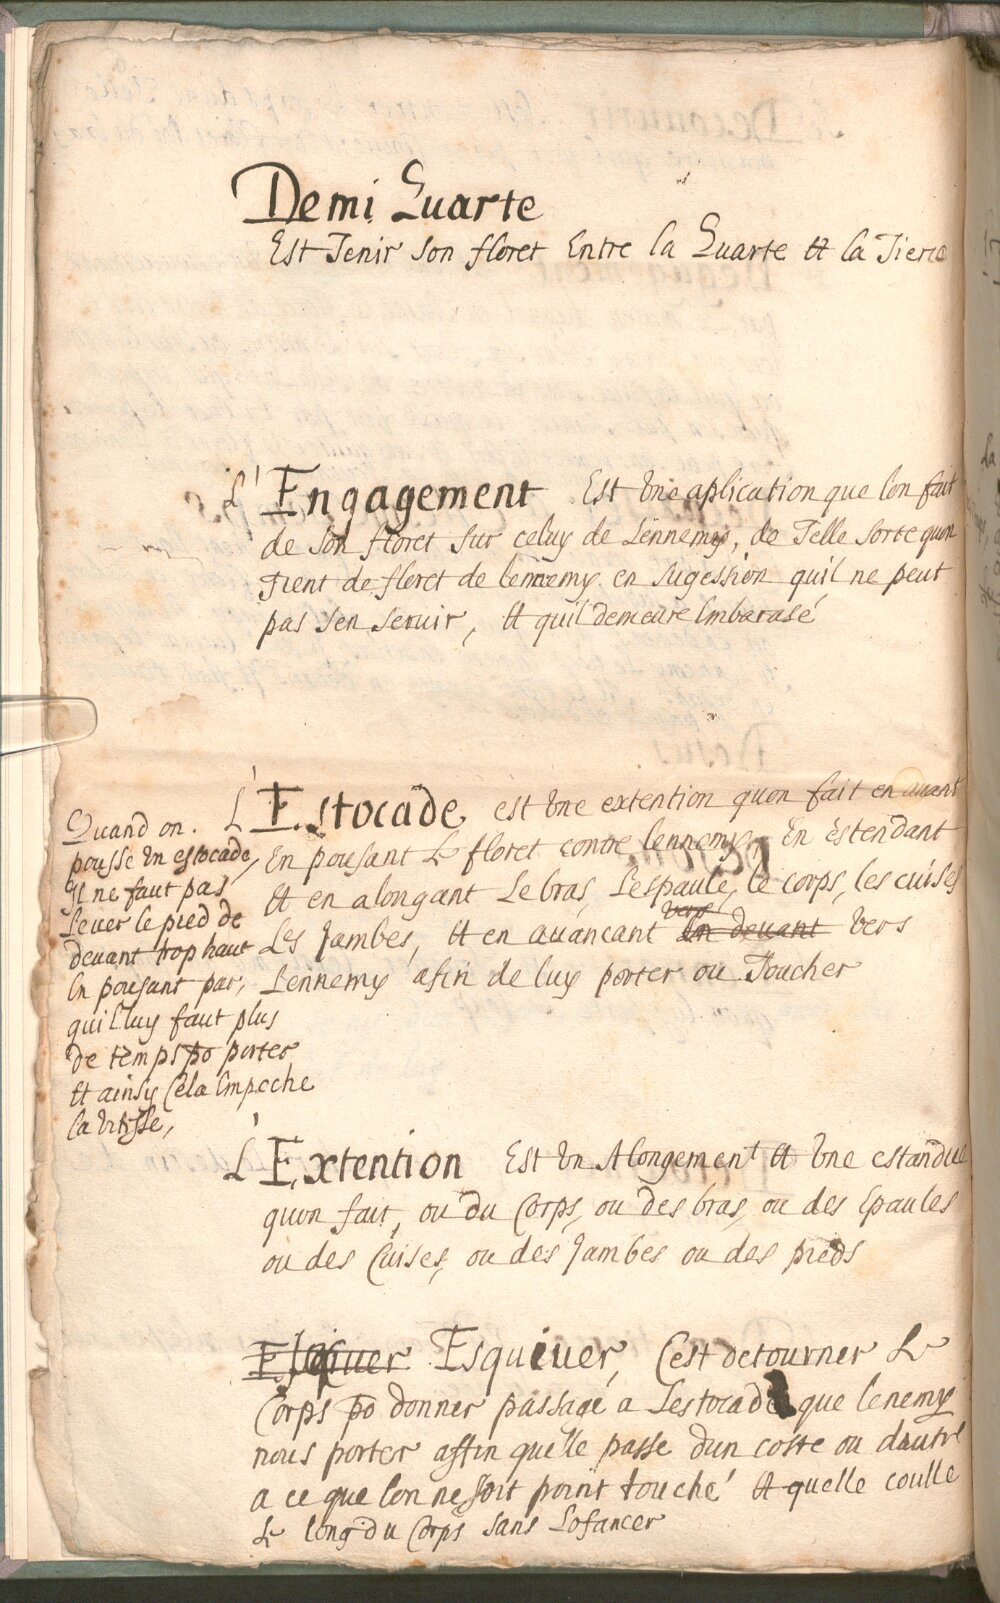 Demi Quarte
Est Tenir son floret Entre la Quarte et la Tierce
L'Engagement Est Une aplication que lon fait
de son floret sur celuy de Lennemy, de Telle sorte quon
Tient de floret de lennemy en sugession quil ne peut
pas sen seruir, et quil demeure Embarasé
L'Estocade est Une extention quon fait en auant
En pousant Le floret contre lennemy En estendant
et en alongant Le bras, Lespaule, le corps, les cuises
Les Jambes, et en auancant vers En deuant Vers
Lennemy afin de luy porter ou Toucher
Quand on.
pousse Un estocade,
Il ne faut pas
Leuer le pied de
deuant trop haut
En pousant par,
quil luy faut plus
de temps po porter
et ainsy Cela Empeche
la Vitesse,
L'Extention Est Un Alongement et Une estandue
quon fait, ou du Corps, ou des bras, ou des Epaules
ou des Cuises, ou des Jambes ou des pieds
Esquiuer, Cest detourner Le
Corps po donner passage a Lestocade que lenemy
nous porter affin quelle passe dun coste ou dautre
a ce que lon ne soit point touché et quelle coulle
Le long du Corps sans Lofancer